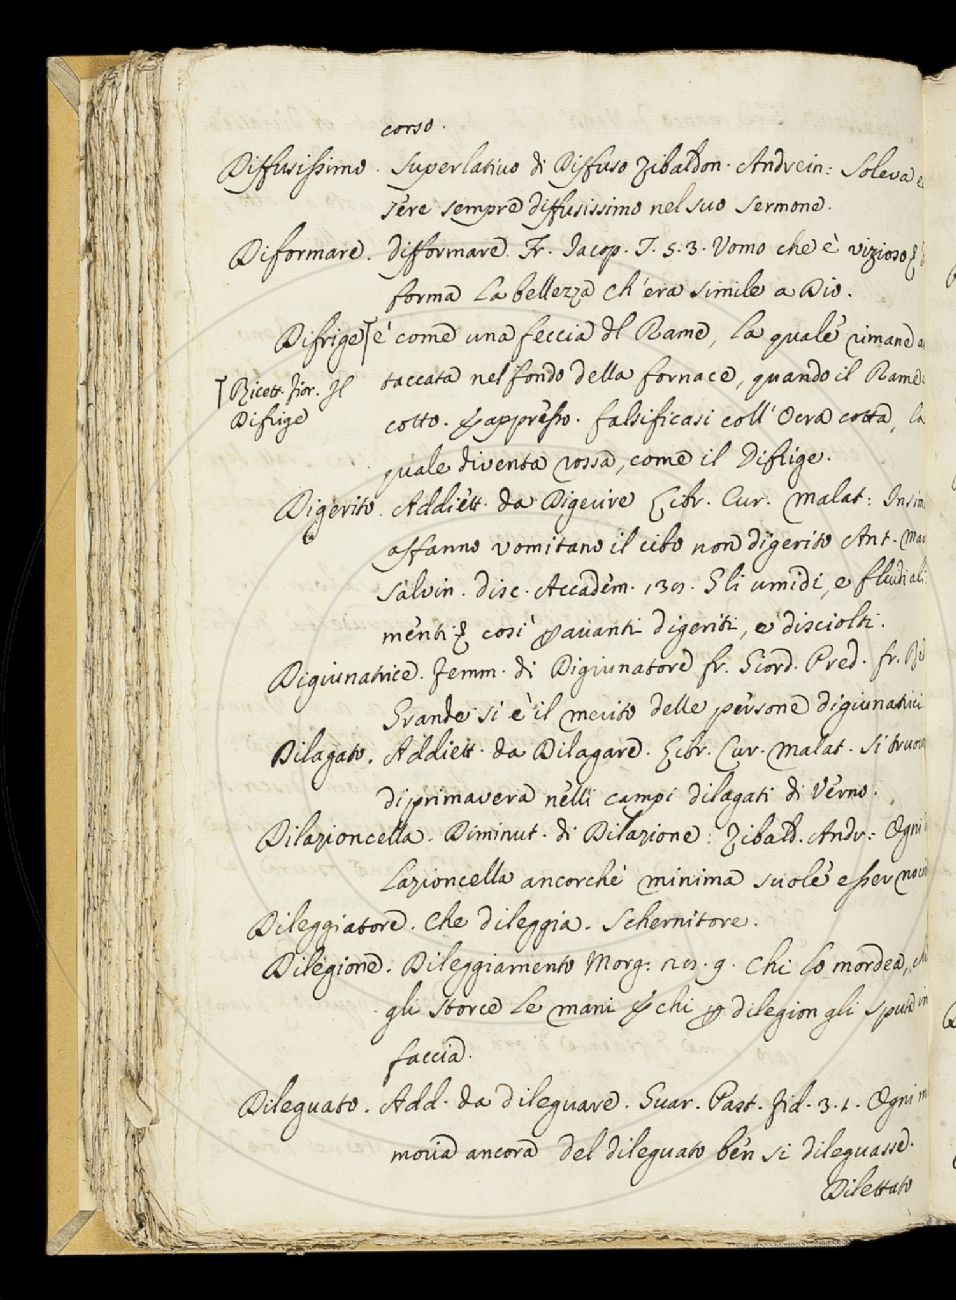 corso.
Diffusissimo. Superlativo di Diffuso Zibaldon. Andrein: Soleva es
sere sempre diffusissimo nel suo sermone.
Diformare. difformare. Fr. Jacop. T. 5. 3. Uomo che è vizioso
forma la bellezza ch'era simile a Dio.
Difrige è come una feccia del Rame, la quale rimane at
Ricett. Fior. Il taccata nel fondo della fornace, quando il Rame
Difrige cotto. appresso. falsificasi coll'Ocra cotta, la
quale diventa rossa, come il Difrige.
Digerito. Addiett. da Digerire Libr. Cur. malat: Insin
affanno vomitano il cibo non digerito Ant. Mar
Salvin. disc. Accadem. Gli umidi, e fluidi ali
menti così avanti digeriti, e disciolti.
Digiunatrice. Femm. di Digiunatore fr. Giord. Pred. fr.
Grande si è il merito delle persone digiunatrici
Dilagato. Addiett. da Dilagare. Libr. Cur. malat. Si truov
di primavera nelli campi dilagati di Verno.
Dilazioncella. Diminut. di Dilazione: Zibald. Andr: Ogni
lazioncella ancorchè minima suole esser
Dileggiatore. Che dileggia. Schernitore.
Diligione. Dileggiamento Morg: 9. Chi lo mordea,
gli storce le mani chi dilegion gli sputa in
faccia.
Dileguato. Add. da dileguare. Guar. Past. Fid. 3. 1. Ogni m
moria ancora del dileguato ben si dileguasse.
Dilettato